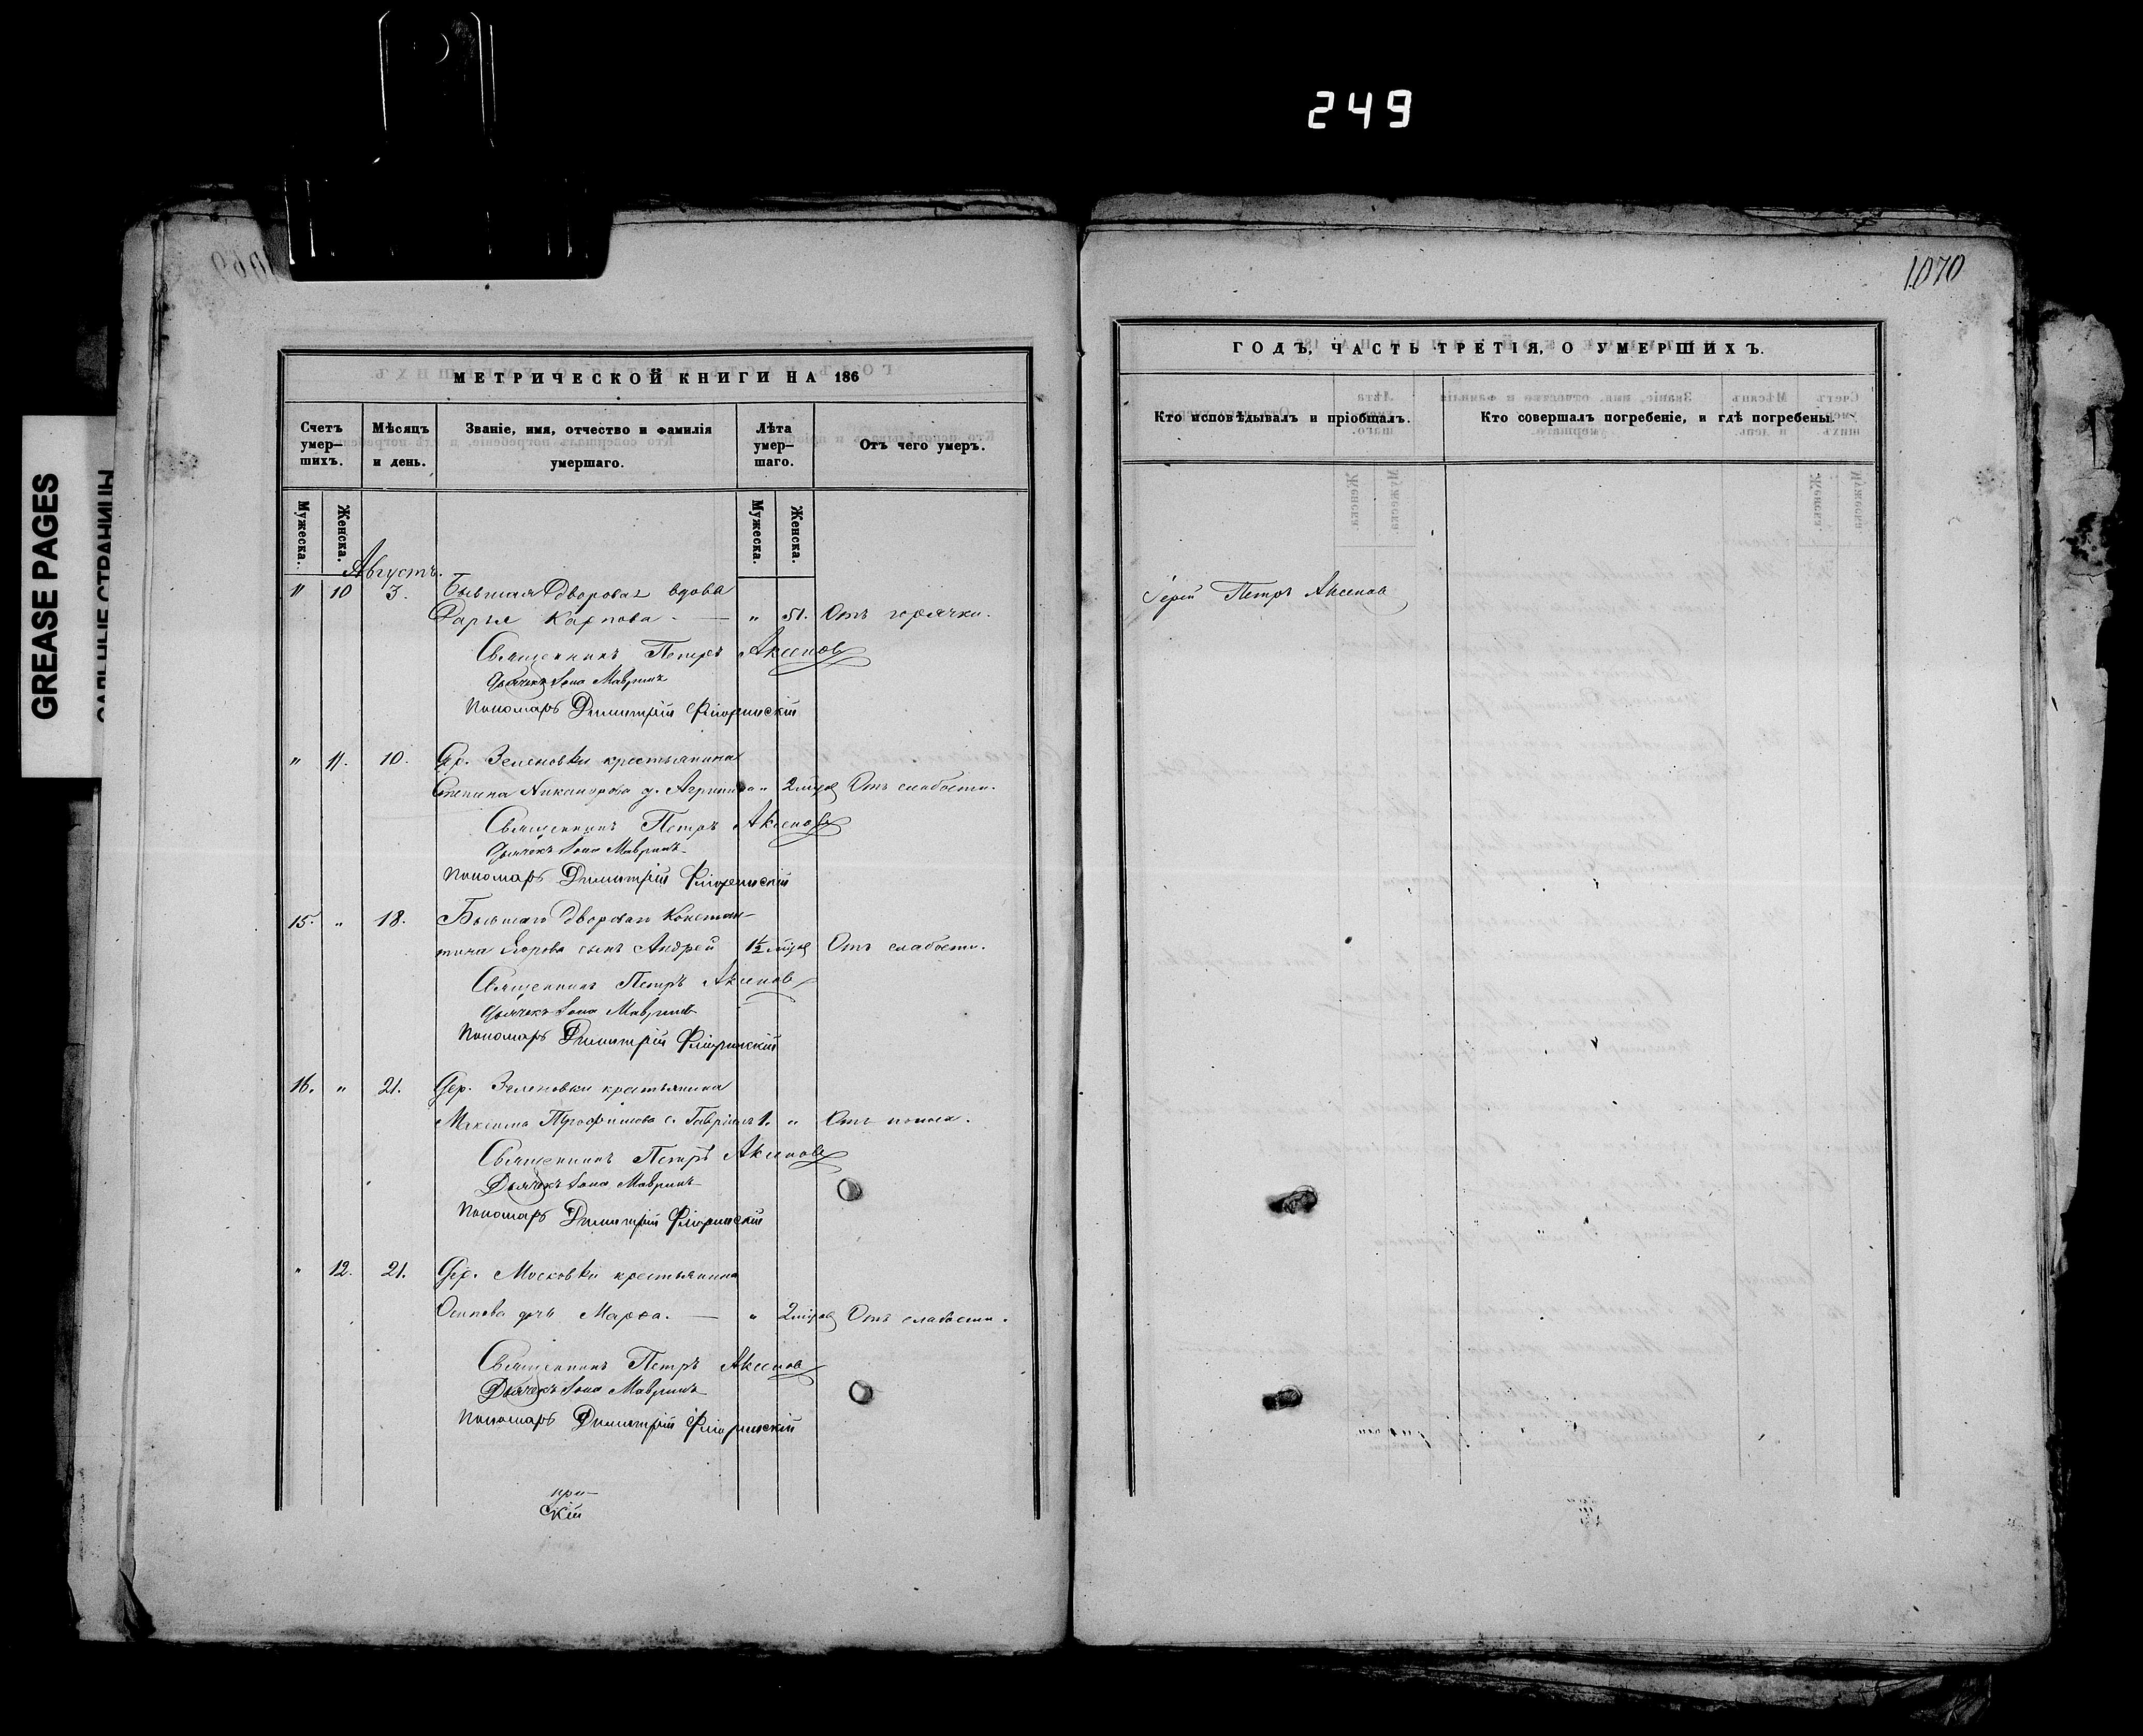 249
GREASE PAGES
САЛЬНЫЕ СТРАНИЦЫ
МЕТРИЧЕСКОЙ КНИГИ НА 186
Счетъ умер–шихъ.
Мѣсяцъ и день.
Званіе, имя, отчество и фамилія умершаго.
Лѣта умер–шаго.
Отъ чего умеръ.
Мужеска.
Женска.
Мужеска.
Женска.
Августъ.
" 10 3. Бывшая дворовая вдова
Дарья Карпова. — " 51. Отъ горячки.
Священникъ Петръ Аксенов
Дьячекъ Іона Мавринъ
Пономарь Димитрій Флоринскій
" 11. 10. Дер. Зеленовки крестьянина
Степана Никанорова д. " 2 Отъ слабости.
Священникъ Петръ Аксенов
Дьячекъ Іона Мавринъ
Пономарь Димитрій Флоринскій
15. " 18. Бывшаго дворваго Констан–
тина Егорова сынъ Андрей 1½ Отъ слабости.
Священникъ Петръ Аксенов
Дьячекъ Іона Мавринъ
Пономарь Димитрій Флоринскій
16. " 21. Дер. Зеленовки крестьянина
Максима Трофимова с. Гавріилъ 1. " Отъ поноса.
Священникъ Петръ Аксенов
Дьячекъ Іона Мавринъ
Пономарь Димитрій Флоринскій
" 12. 21. Дер. Московки крестьянина
Осипова дочь Марѳа. — " 2 Отъ слабости.
Священникъ Петръ Аксенов
Дьячекъ Іона Мавринъ
Пономарь Димитрій Флоринскій
скій
1070
ГОДЪ, ЧАСТЬ ТРЕТІЯ, О УМЕРШИХЪ.
Кто исповѣдывалъ и пріобщалъ.
Кто совершалъ погребеніе, и гдѣ погребены.
Іерей Петръ Аксенов